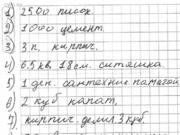 1) 2500 писок
2) 1000 цемент.
3) 3 п. кирпич.
4) 6,5 кв. 18 см. ситяшка.
5) 1 ден. сантехник памагой
6) 2 куб капат,
7) кирпич. делил 3 куб.